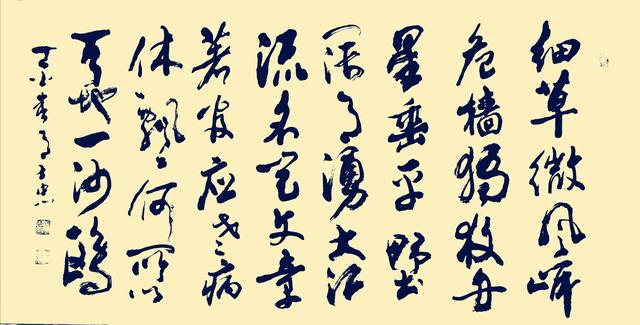 细草微风岸
危樯独夜舟
星垂平野
阔月涌大江
流名岂文章
著官应老病
休飘飘何所似
天地一沙鸥